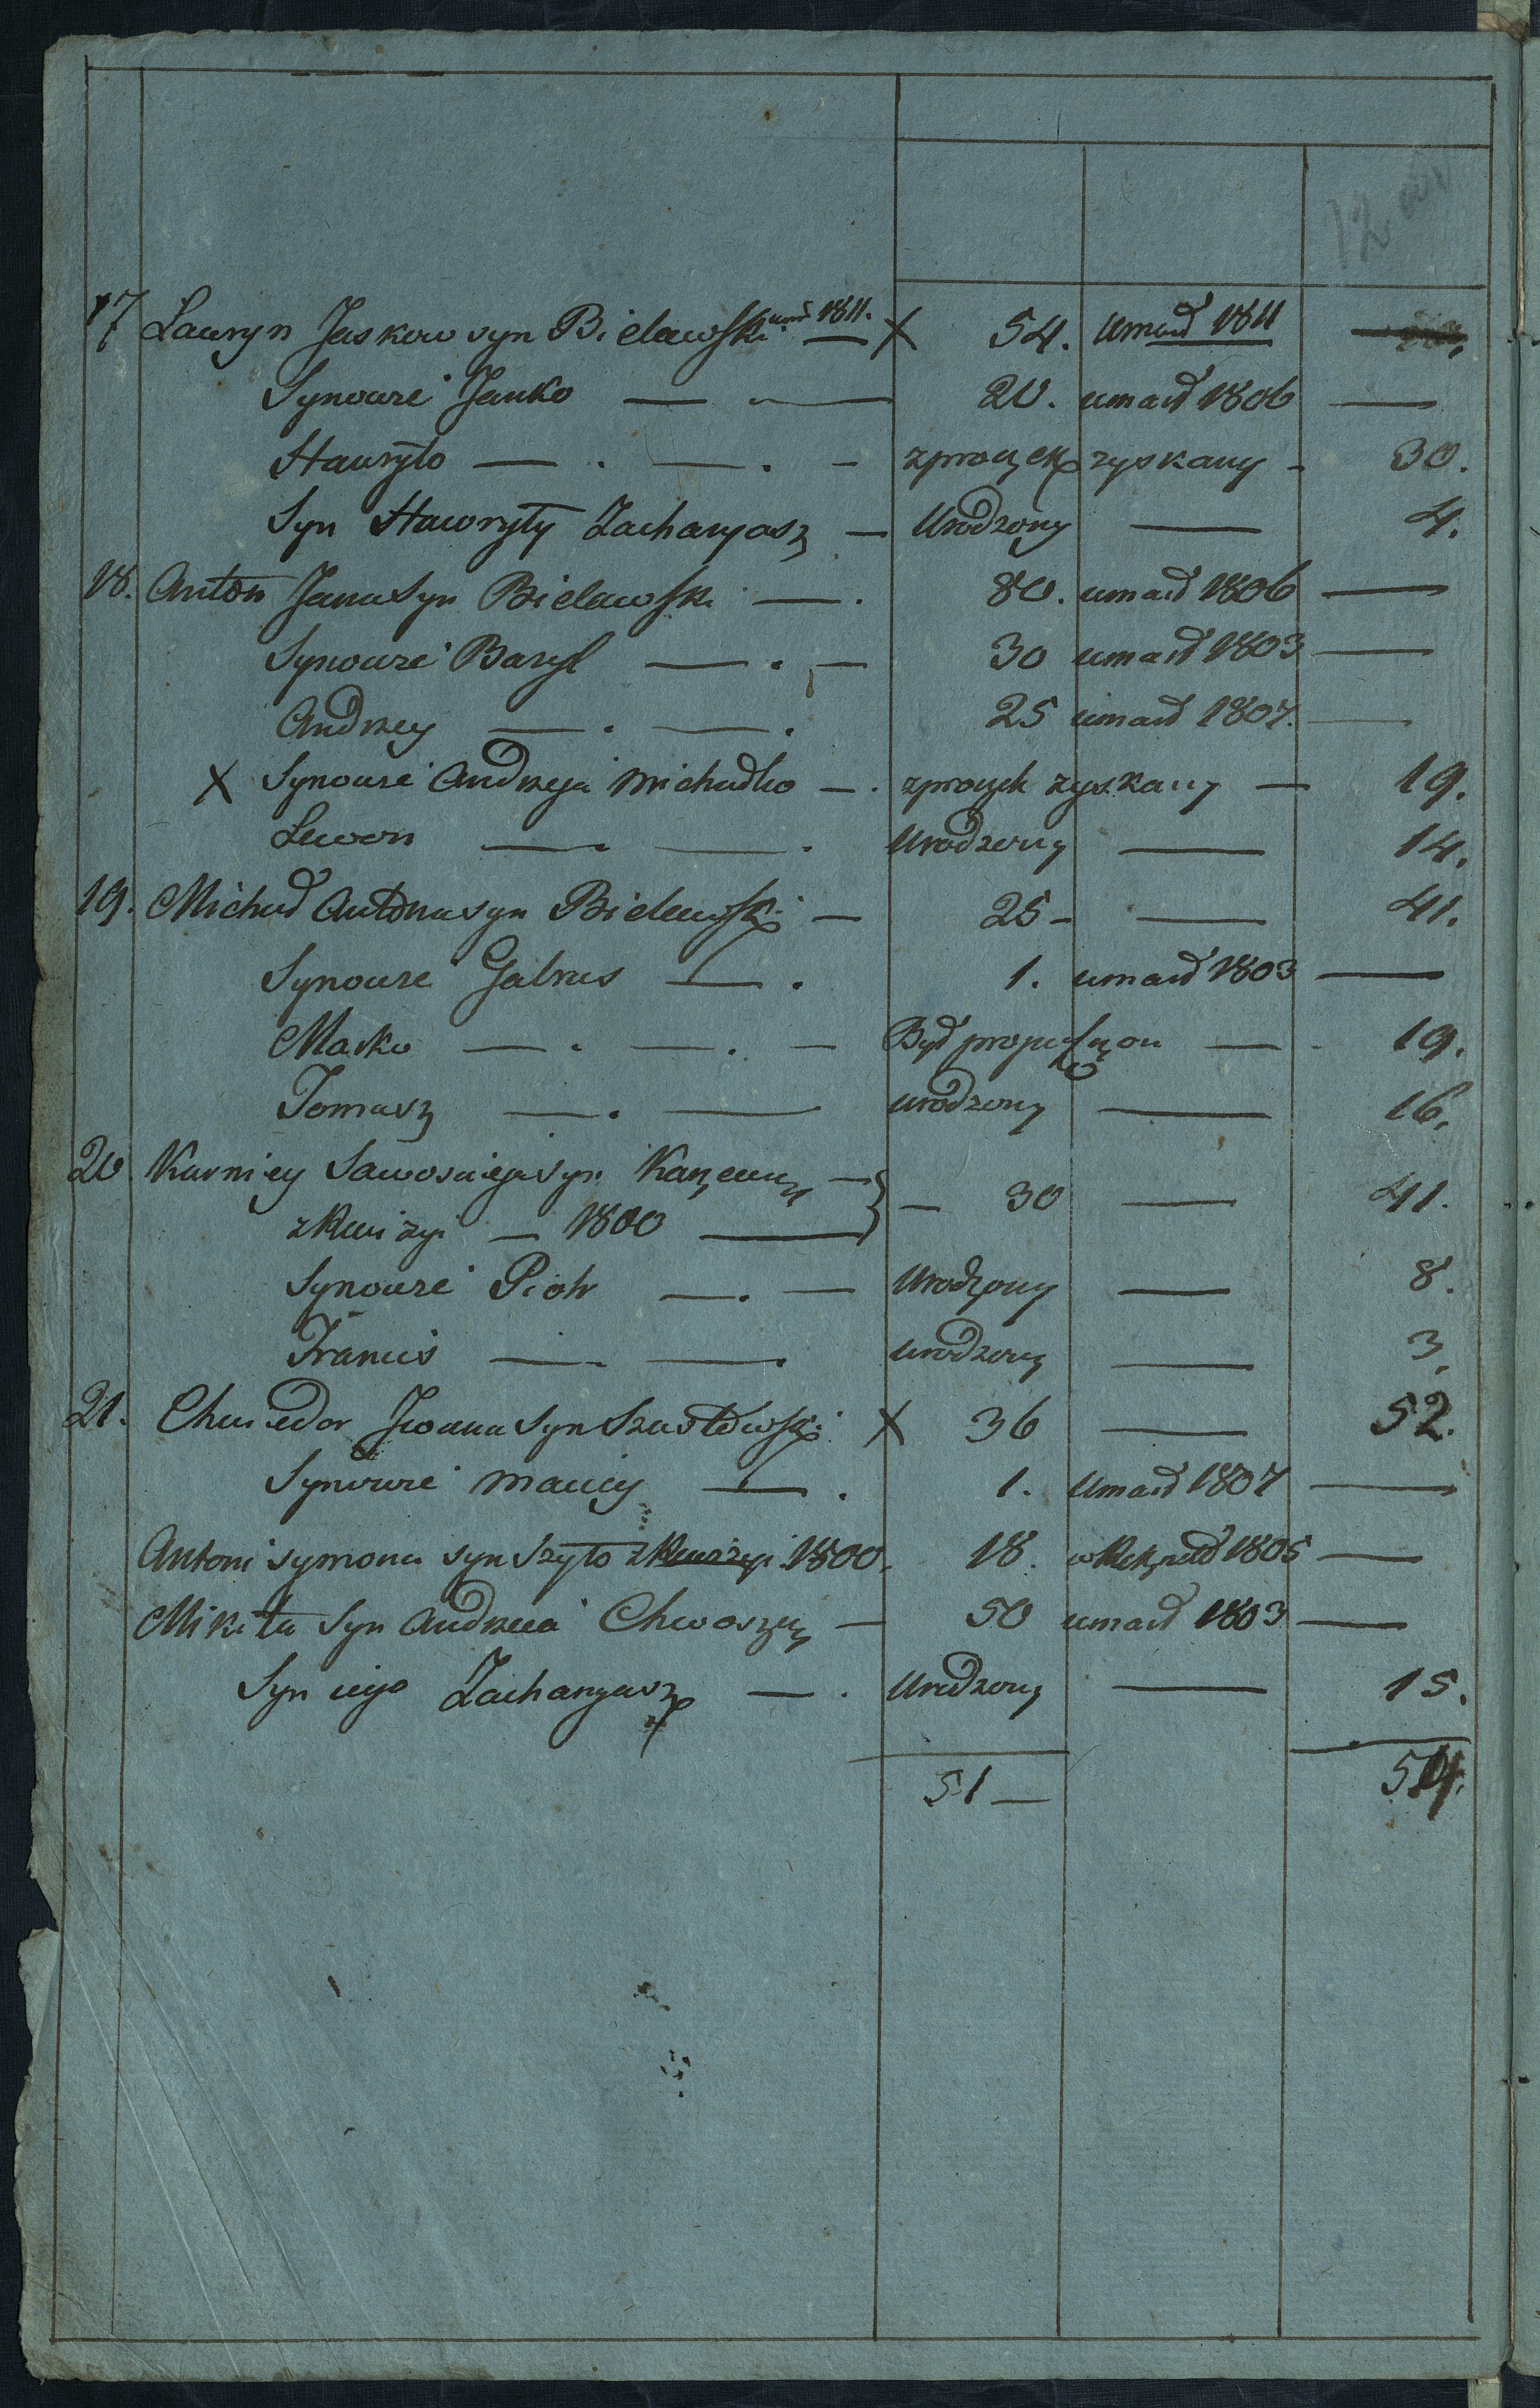 12 об
17 Lawryn Jaskow syn Bielawski umd 1811. — X 54. Umarł 1811
Synowie Janko — 20. umarł 1806 —
Hawryło — . — . — z proczek zyskany - 30.
Syn Hawryły Zacharyasz — Urodzony — 4.
18. Anton Jana Syn Bielawski — . 80. umarł 1806 —
Synowie Bazyl — . — 30 umarł 1803 —
Andrzey — . — . 25 umarł 1807. —
X Synowie Andrzeja Michałko — . z proczek zyskany — 19.
Lewon — . — . Urodzony — 14.
19. Michał Antona syn Bielawski — 25 - — 41.
Synowie Gabrus — . 1. umarł 1803 —
Marko — . — . — Był propuszczon — . 19.
Tomasz — . — urodzony — 16.
20. Karniey Sawosieja Syn — } — 30 — 41.
z Rewizyi — 1800 —
Synowie Piotr — . — Urodzony — 8.
Franciś — . — . urodzony — 3.
21. Chwiedor Jwana Syn X 36 — 52.
Synowie Maciey — . 1. Umarł 1807 —
Antoni symona syn Szyło z Rewizyi 1800. 18. w Rekruty 1805 —
Mikita Syn Andrzeia — 50 umarł 1803 —
Syn iego Zacharyasz — . Urodzony — 15.
51 — 54.